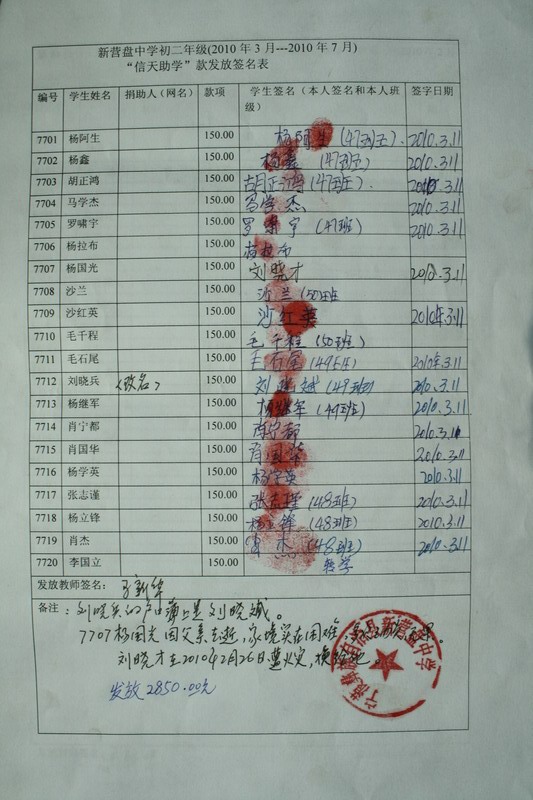 新营盘中学初二年级(2010 年 3 月---2010 年 7 月)
“信天助学”款发放签名表
编号 学生姓名 捐助人（网名） 款项 学生签名（本人签名和本人班级） 签字日期
7701 杨阿生 150.00 杨阿生 2010.3.11
7702 杨鑫 150.00 杨鑫 2010.3.11
7703 胡正鸿 150.00 胡正鸿 (47班) 2010.3.11
7704 马学杰 150.00 马学杰 2010.3.11
7705 罗啸宇 150.00 罗啸宇 (47班) 2010.3.11
7706 杨拉布 150.00
7707 杨国光 150.00 刘晓才 2010.3.11
7708 沙兰 150.00 沙兰 (50班
7709 沙红英 150.00 沙红英 2010年3.11
7710 毛千程 150.00 毛千程 (50班)
7711 毛石尾 150.00 毛石尾 2010年3.11
7712 刘晓兵 〈改名〉 150.00 刘晓斌 (49班) 2010.3.11
7713 杨继军 150.00 杨继军 (49班) 2010.3.11
7714 肖宁都 150.00 肖宁都 2010.3.11
7715 肖国华 150.00 肖国华 2010.3.11
7716 杨学英 150.00 杨学英 2010.3.11
7717 张志谨 150.00 张志谨 (48班) 2010.3.11
7718 杨立锋 150.00 杨立锋 (48班) 2010.3.11
7719 肖杰 150.00 肖杰 (48班) 2010.3.11
7720 李国立 150.00 转学
发放教师签名：
备注：刘晓兵的户口薄上是刘晓斌。
7707杨国光因父亲去逝，家境实在困难
刘晓才在2010年2月26日遭火灾，换给他。
发放2850.00元
新营盘中学